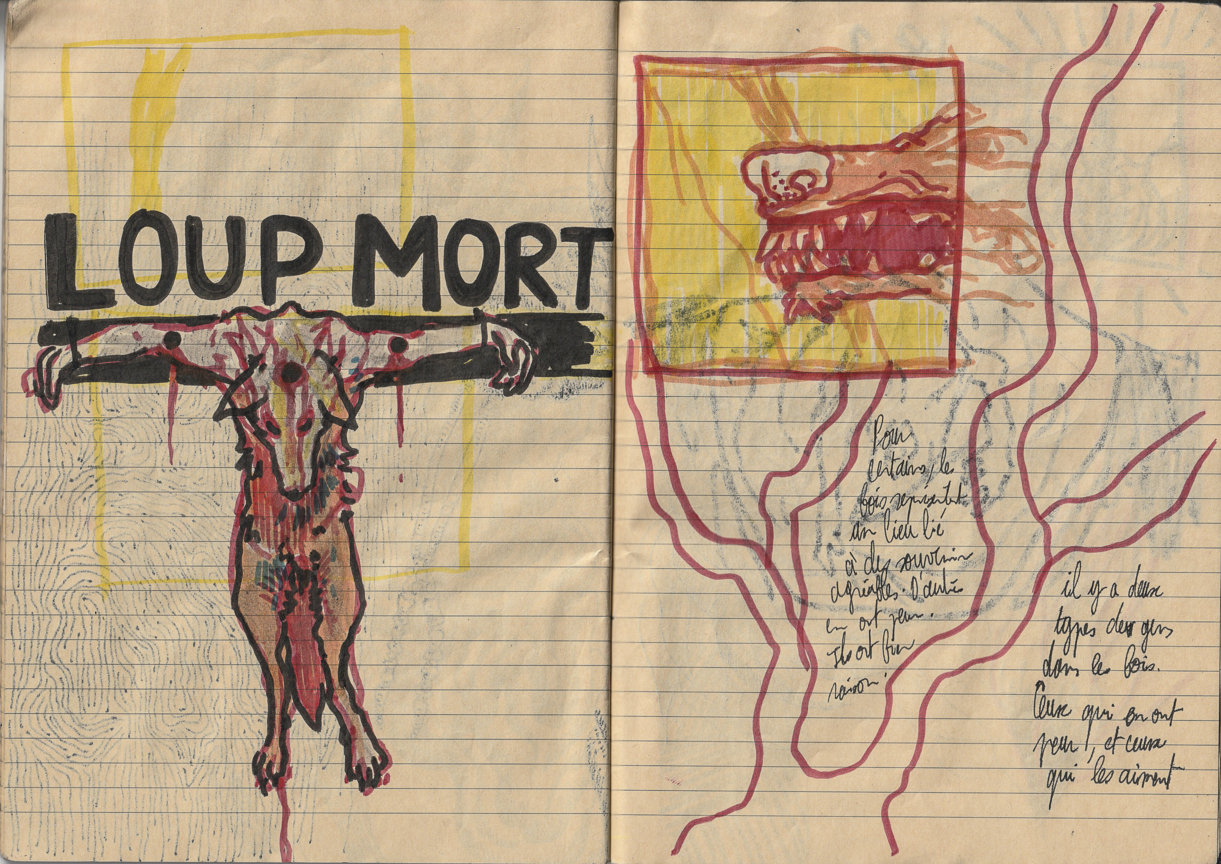 LOUP MORT
Pour
certains, les
bois représentent
un lieu lié
à des souvenirs
agréables. D'autres
en ont peur.
Ils ont bien
raison.
il y a deux
types de gens
dans les bois.
Ceux qui en ont
peur, et ceux
qui les aiment